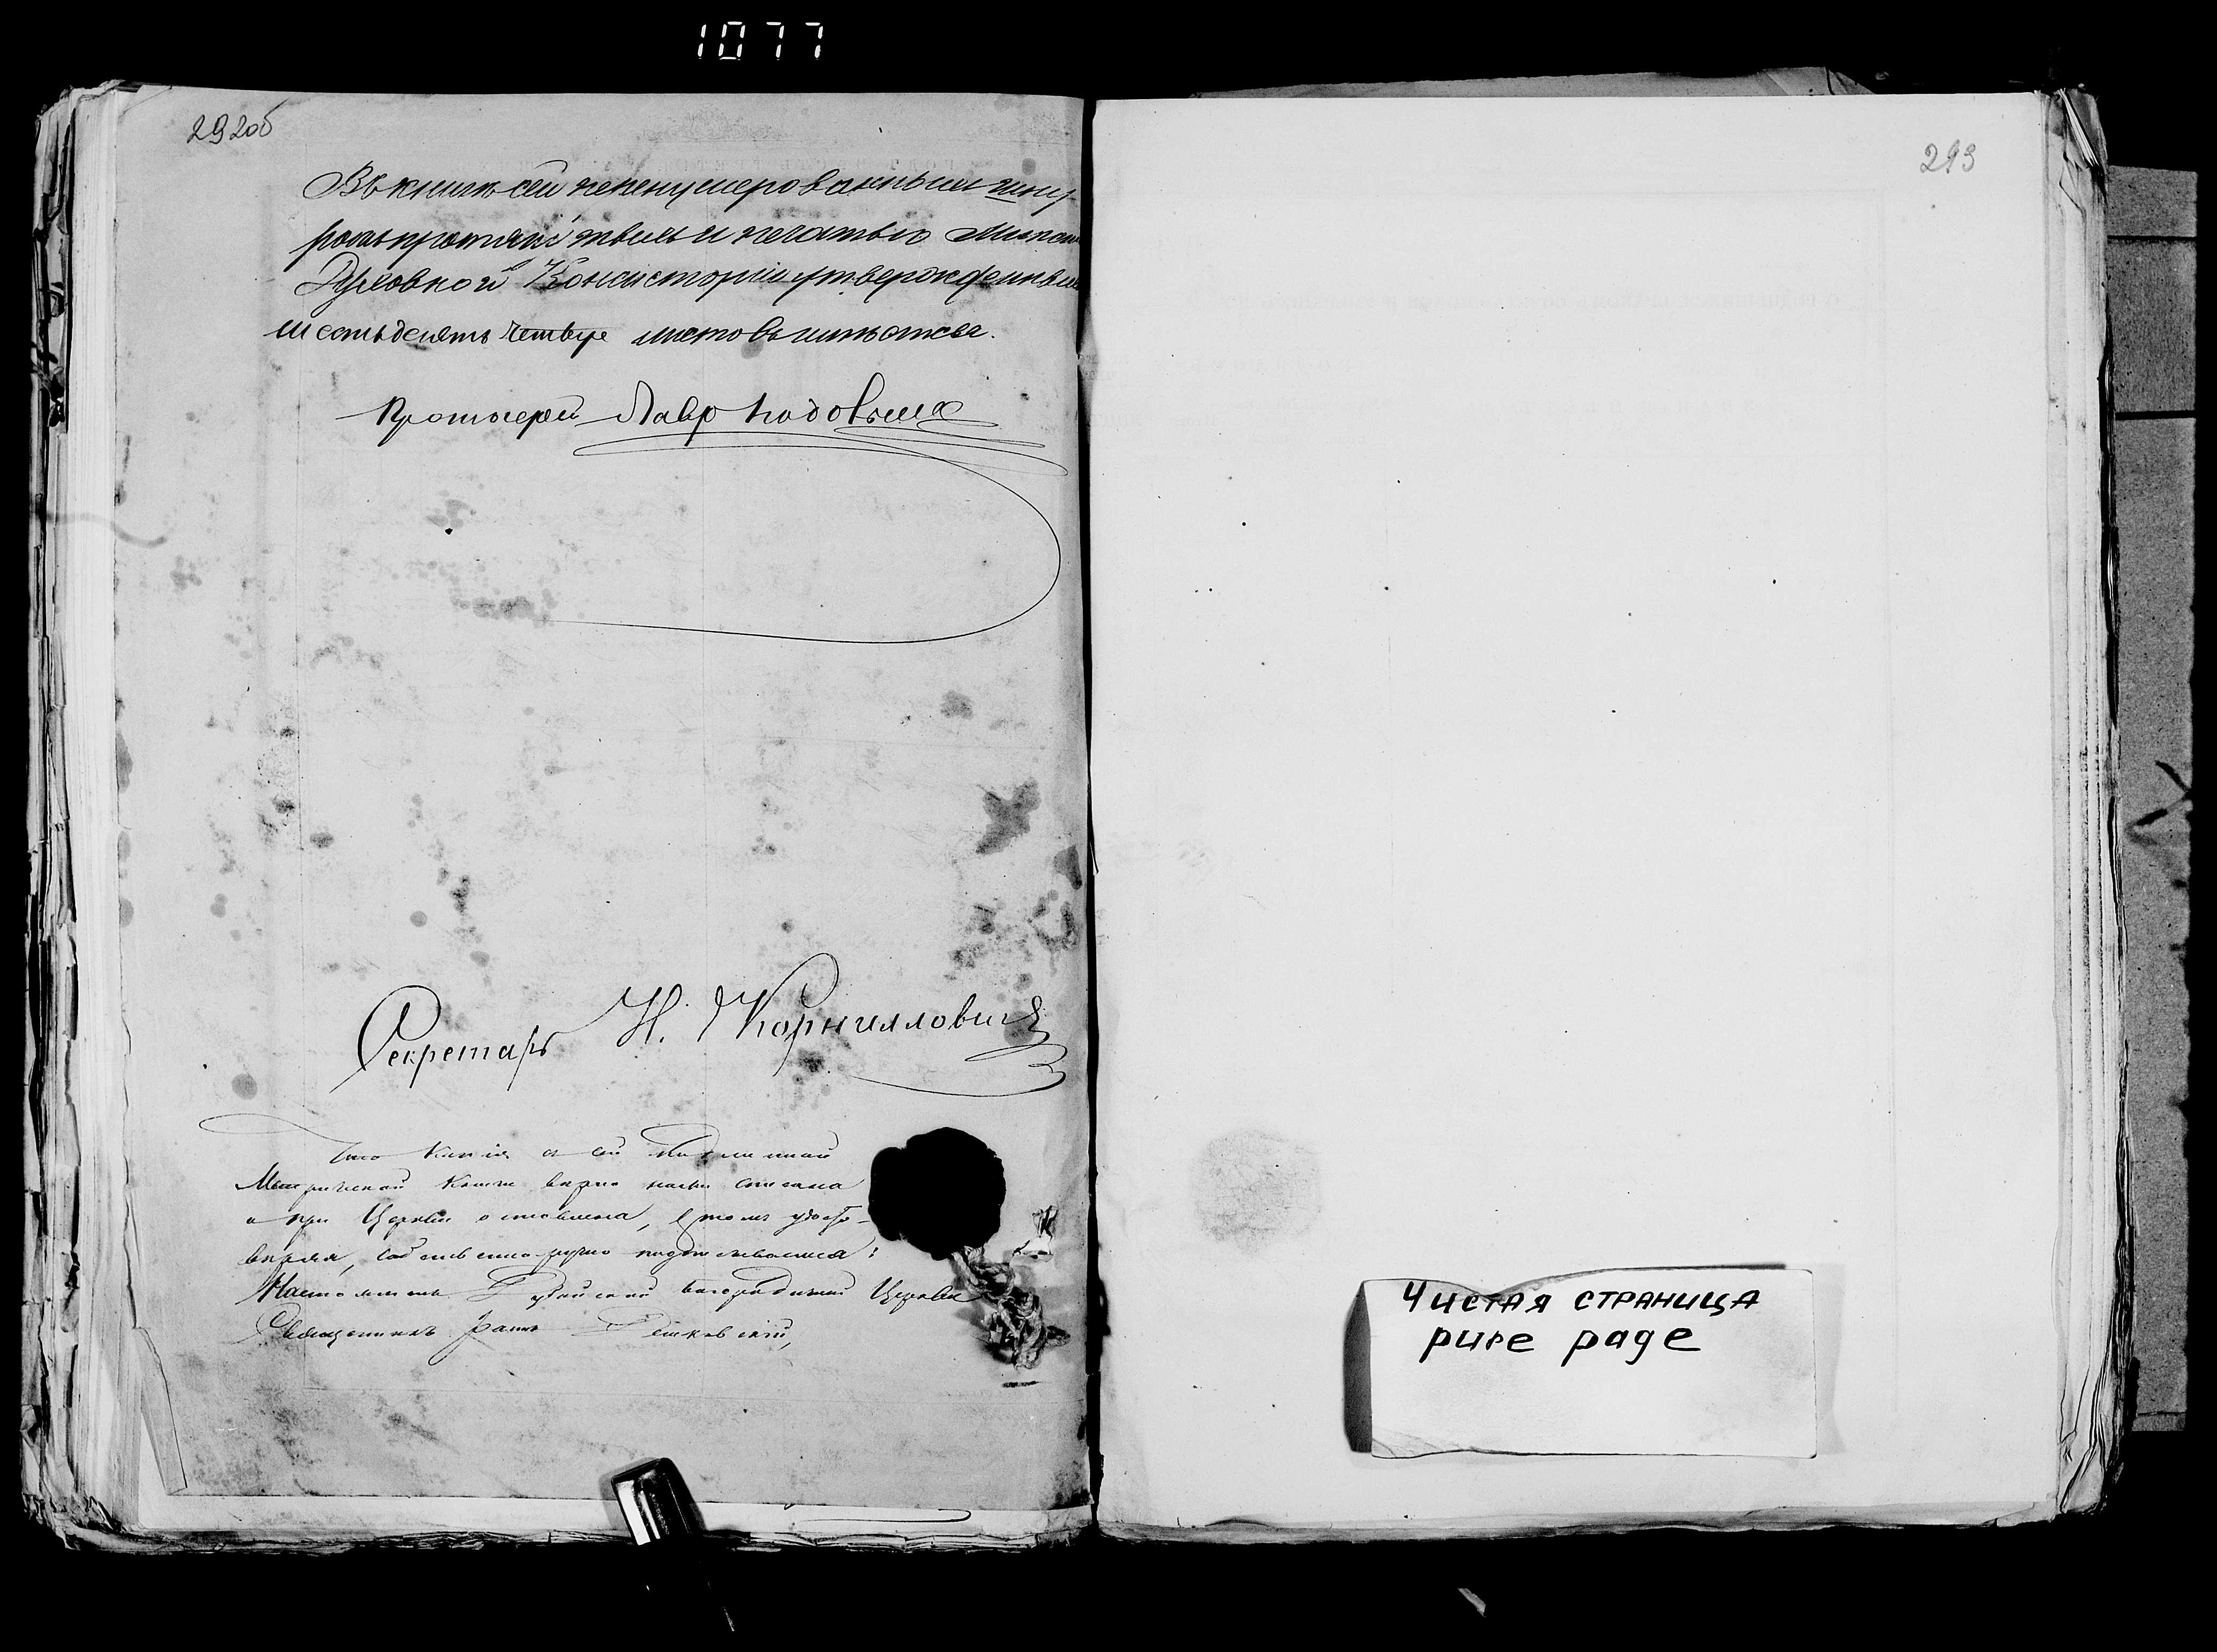 1077
292об
Въ книгѣ сей перенумерованныхъ шну-
ромъ протянутыхъ и печатью Минской
Духовной Консисторіи утвержденныхъ
шестьдесятъ четыре листовъ имѣется.
Протоіерей Лавръ
Секретарь Н. Корниловичъ
Что копія съ сей подлинной
Метрической книги вѣрно мною списана
и при Церкви оставлена, въ томъ удосто-
вѣряя, собственноручно подписываюсь:
Настоятель Богородичной Церкви
Священникъ
293
Чистая страница
pure page